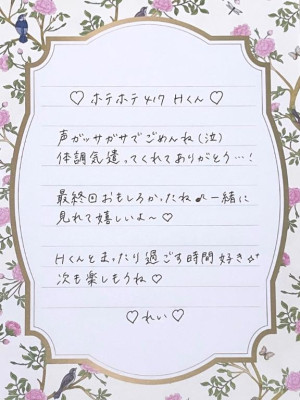 ♡ ホテホテ417 Hくん ♡
声がッサガサでごめんね(泣)
体調気遣ってくれてありがとう…!
最終回おもしろかったね♪一緒に
見れて嬉しいよ〜♡
Hくんとまったり過ごす時間好き✨
次も楽しもうね♡
♡ れい ♡